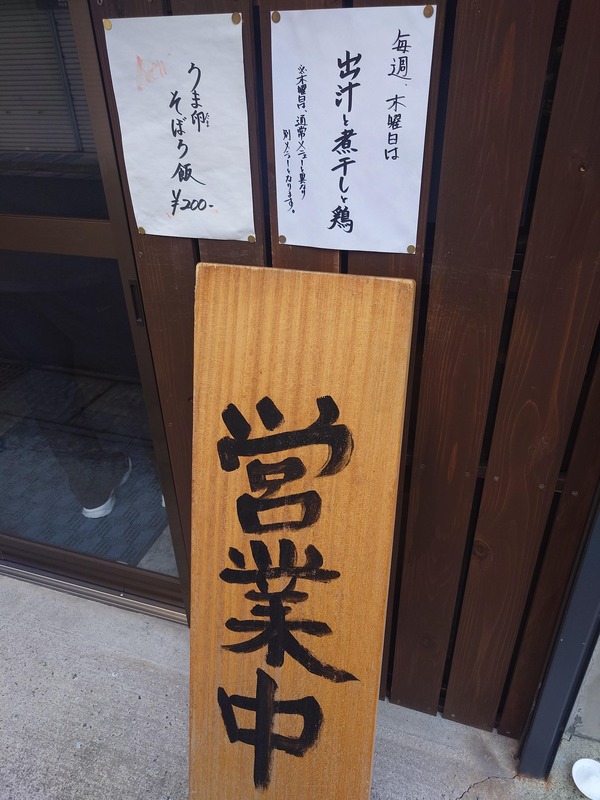 毎週、木曜日は
出汁と煮干しと鶏
※木曜日は、通常メニューと異なり
別メニューとなります。
うま卵
そぼろ飯
¥200-
営業中